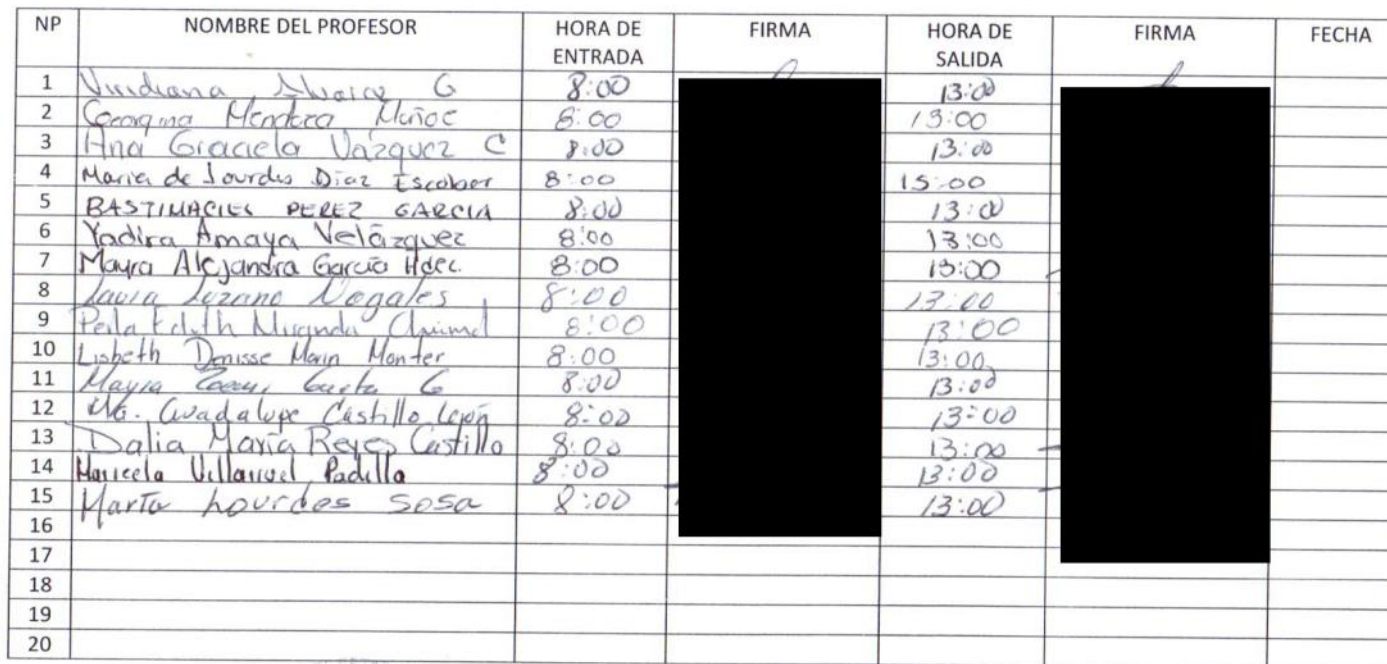 NP NOMBRE DEL PROFESOR HORA DE ENTRADA FIRMA HORA DE SALIDA FIRMA FECHA
1 Viridiana G 8:00 13:00
2 Georgina Mendoza Muñoz 8:00 13:00
3 Ana Graciela Vázquez C 8:00 13:00
4 Maria de Lourdes Díaz Escobar 8:00 15:00
5 PEREZ GARCIA 8:00 13:00
6 Yadira Amaya Velázquez 8:00 13:00
7 Mayra Alejandra García Hdez. 8:00 13:00
8 Laura Lozano Nogales 8:00 13:00
9 Perla Edith Miranda 8:00 13:00
10 Lisbeth Denisse Marin Monter 8:00 13:00
11 Mayra G 8:00 13:00
12 Ma. Guadalupe Castillo 8:00 13:00
13 Dalia María Reyes Castillo 8:00 13:00
14 Maricela Villarruel Padilla 8:00 13:00
15 María Lourdes Sosa 8:00 13:00
16
17
18
19
20